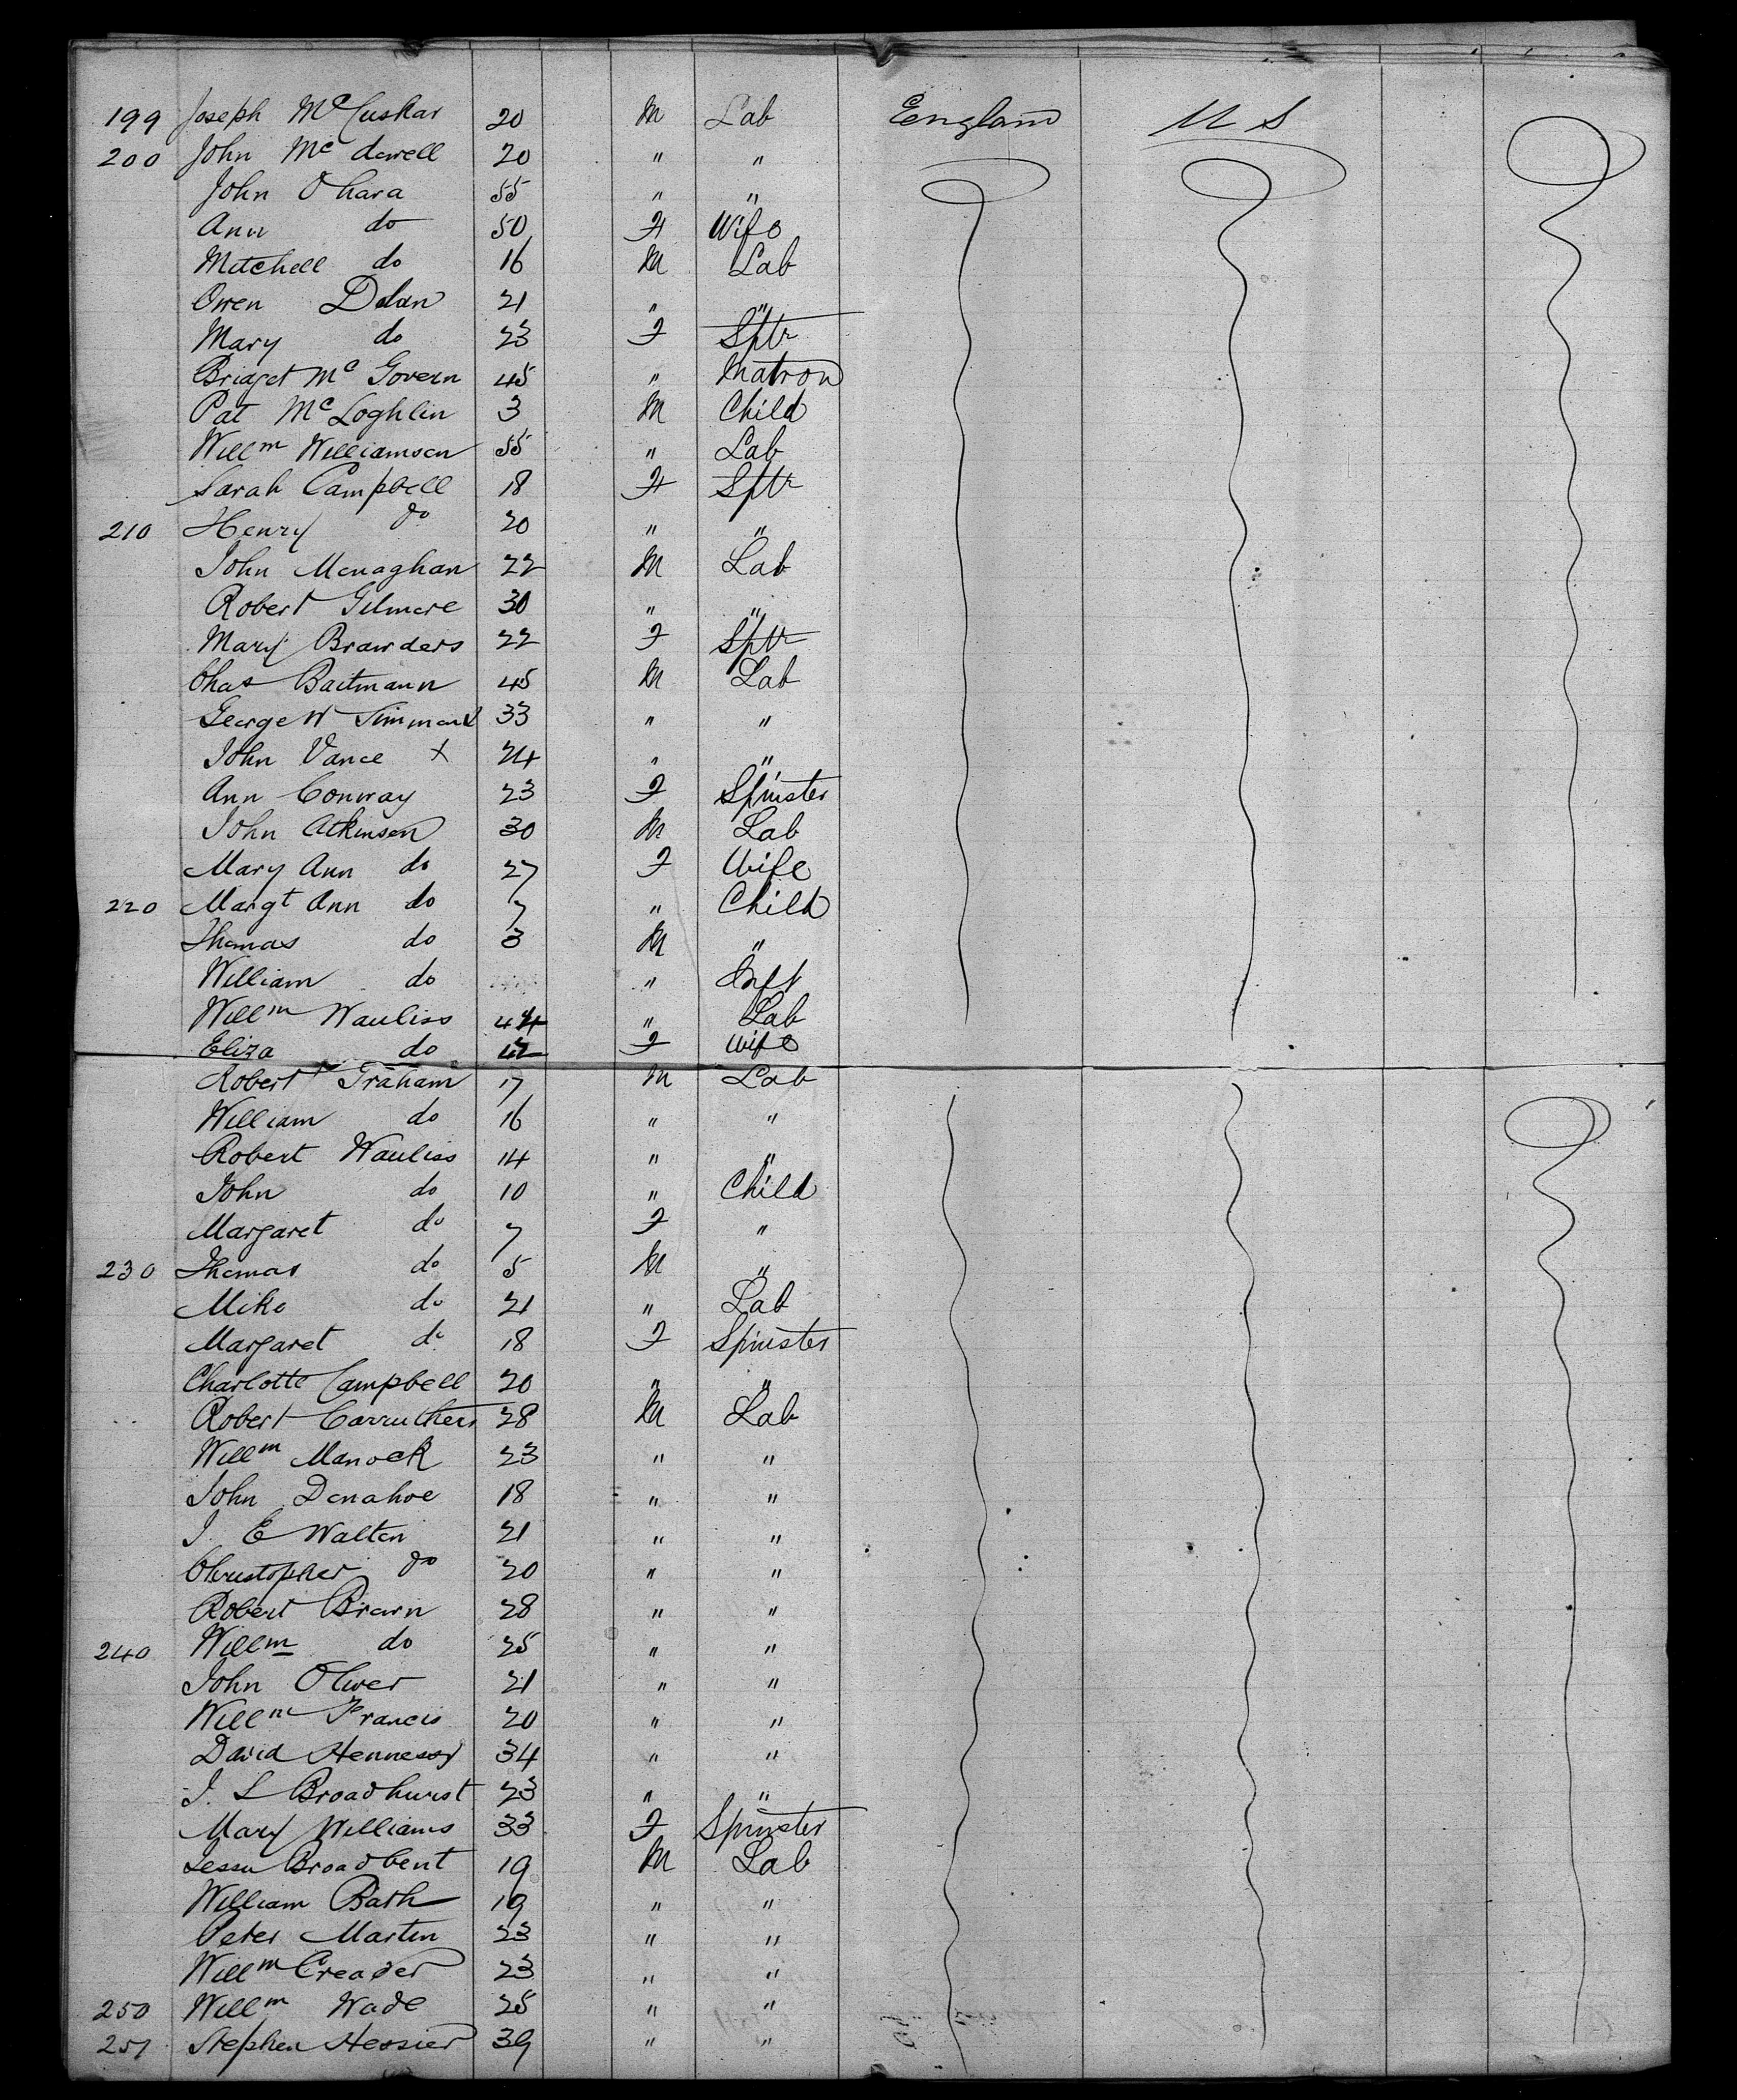 199 Joseph McCuskar 20 M Lab England U S
200 John Mc dowell 20 " "
John Ohara 55 " "
Ann do 50 F Wife
Mitchell do 16 M Lab
Owen Dolan 21 " "
Mary do 23 F Sptr
Bridget Mc Govern 45 " Matron
Pat Mc Loghlin 3 M Child
Willm Williamson 55 " Lab
Sarah Campbell 18 F Sptr
210 Henry do 20 " "
John Monaghan 22 M Lab
Robert Gilmore 30 " "
Mary Browders 22 F Sptr
Chas Baitmann 45 M Lab
George W Simmons 33 " "
John Vance x 24 " "
Ann Conway 23 F Spinster
John Atkinson 30 M Lab
Mary Ann do 27 F Wife
220 Margt Ann do 7 " Child
Thomas do 3 M "
William do " Inft
Willm Wauliss 44 " Lab
Eliza do 42 F Wife
Robert Graham 17 M Lab
William do 16 " "
Robert Wauliss 14 " "
John do 10 " Child
Margaret do 7 F "
230 Thomas do 5 M "
Mike do 21 " Lab
Margaret do 18 F Spinster
Charlotte Campbell 20 " "
Robert Carruthers 28 M Lab
Willm Manock 23 " "
John Donahoe 18 " "
J. E Walton 21 " "
Christopher do 20 " "
Robert Brown 28 " "
240 Willm do 25 " "
John Oliver 21 " "
Willm Francis 20 " "
David Hennessy 34 " "
J. L Broadhurst 23 " "
Mary Williams 33 F Spinster
Jesse Broadbent 19 M Lab
William Bath 19 " "
Peter Martin 23 " "
Willm Creader 23 " "
250 Willm Wade 25 " "
251 Stephen Hessier 39 " "